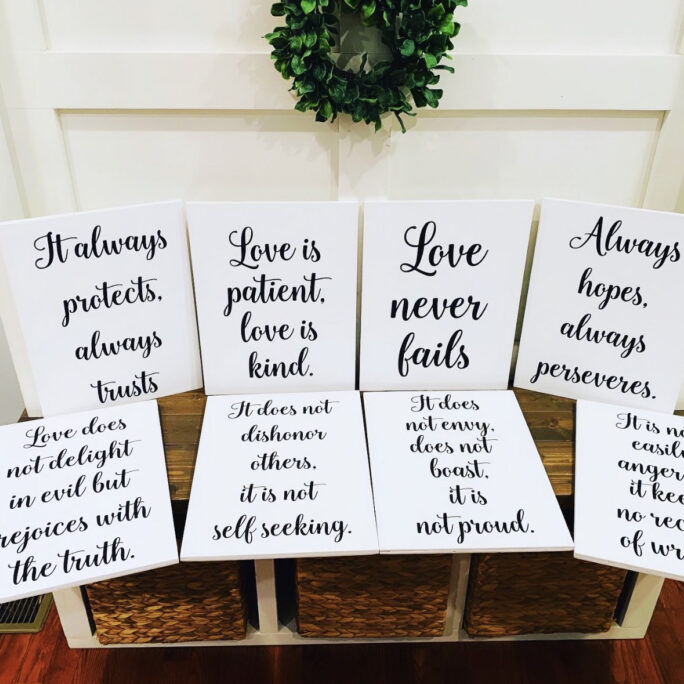 It always
protects,
always
trusts
Love is
patient,
love is
kind.
Love
never
fails
Always
hopes,
always
perseveres.
Love does
not delight
in evil but
rejoices with
the truth.
It does not
dishonor
others,
it is not
self seeking.
It does
not envy,
does not
boast,
it is
not proud.
It is no
easily
anger
it kee
no rec
of wr